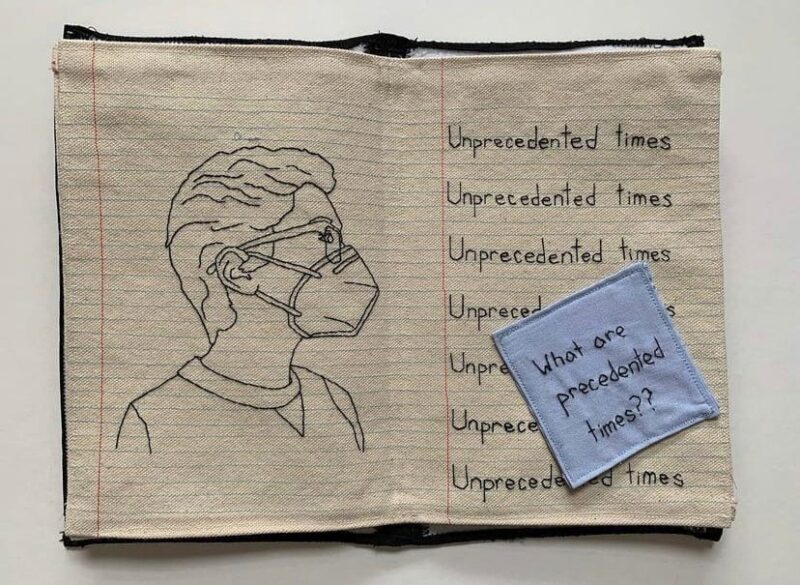 Unprecedented times
Unprecedented times
Unprecedented times
Unpreced s
Unpre
Unprece
Unprecede ed times
What are
precedented
times??